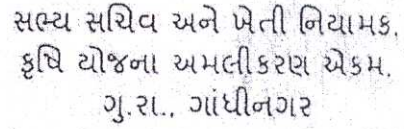 સભ્ય સચિવ અને ખેતી નિયામક,
કૃષિ યોજના અમલીકરણ એકમ.
ગુ.રા., ગાંધીનગર